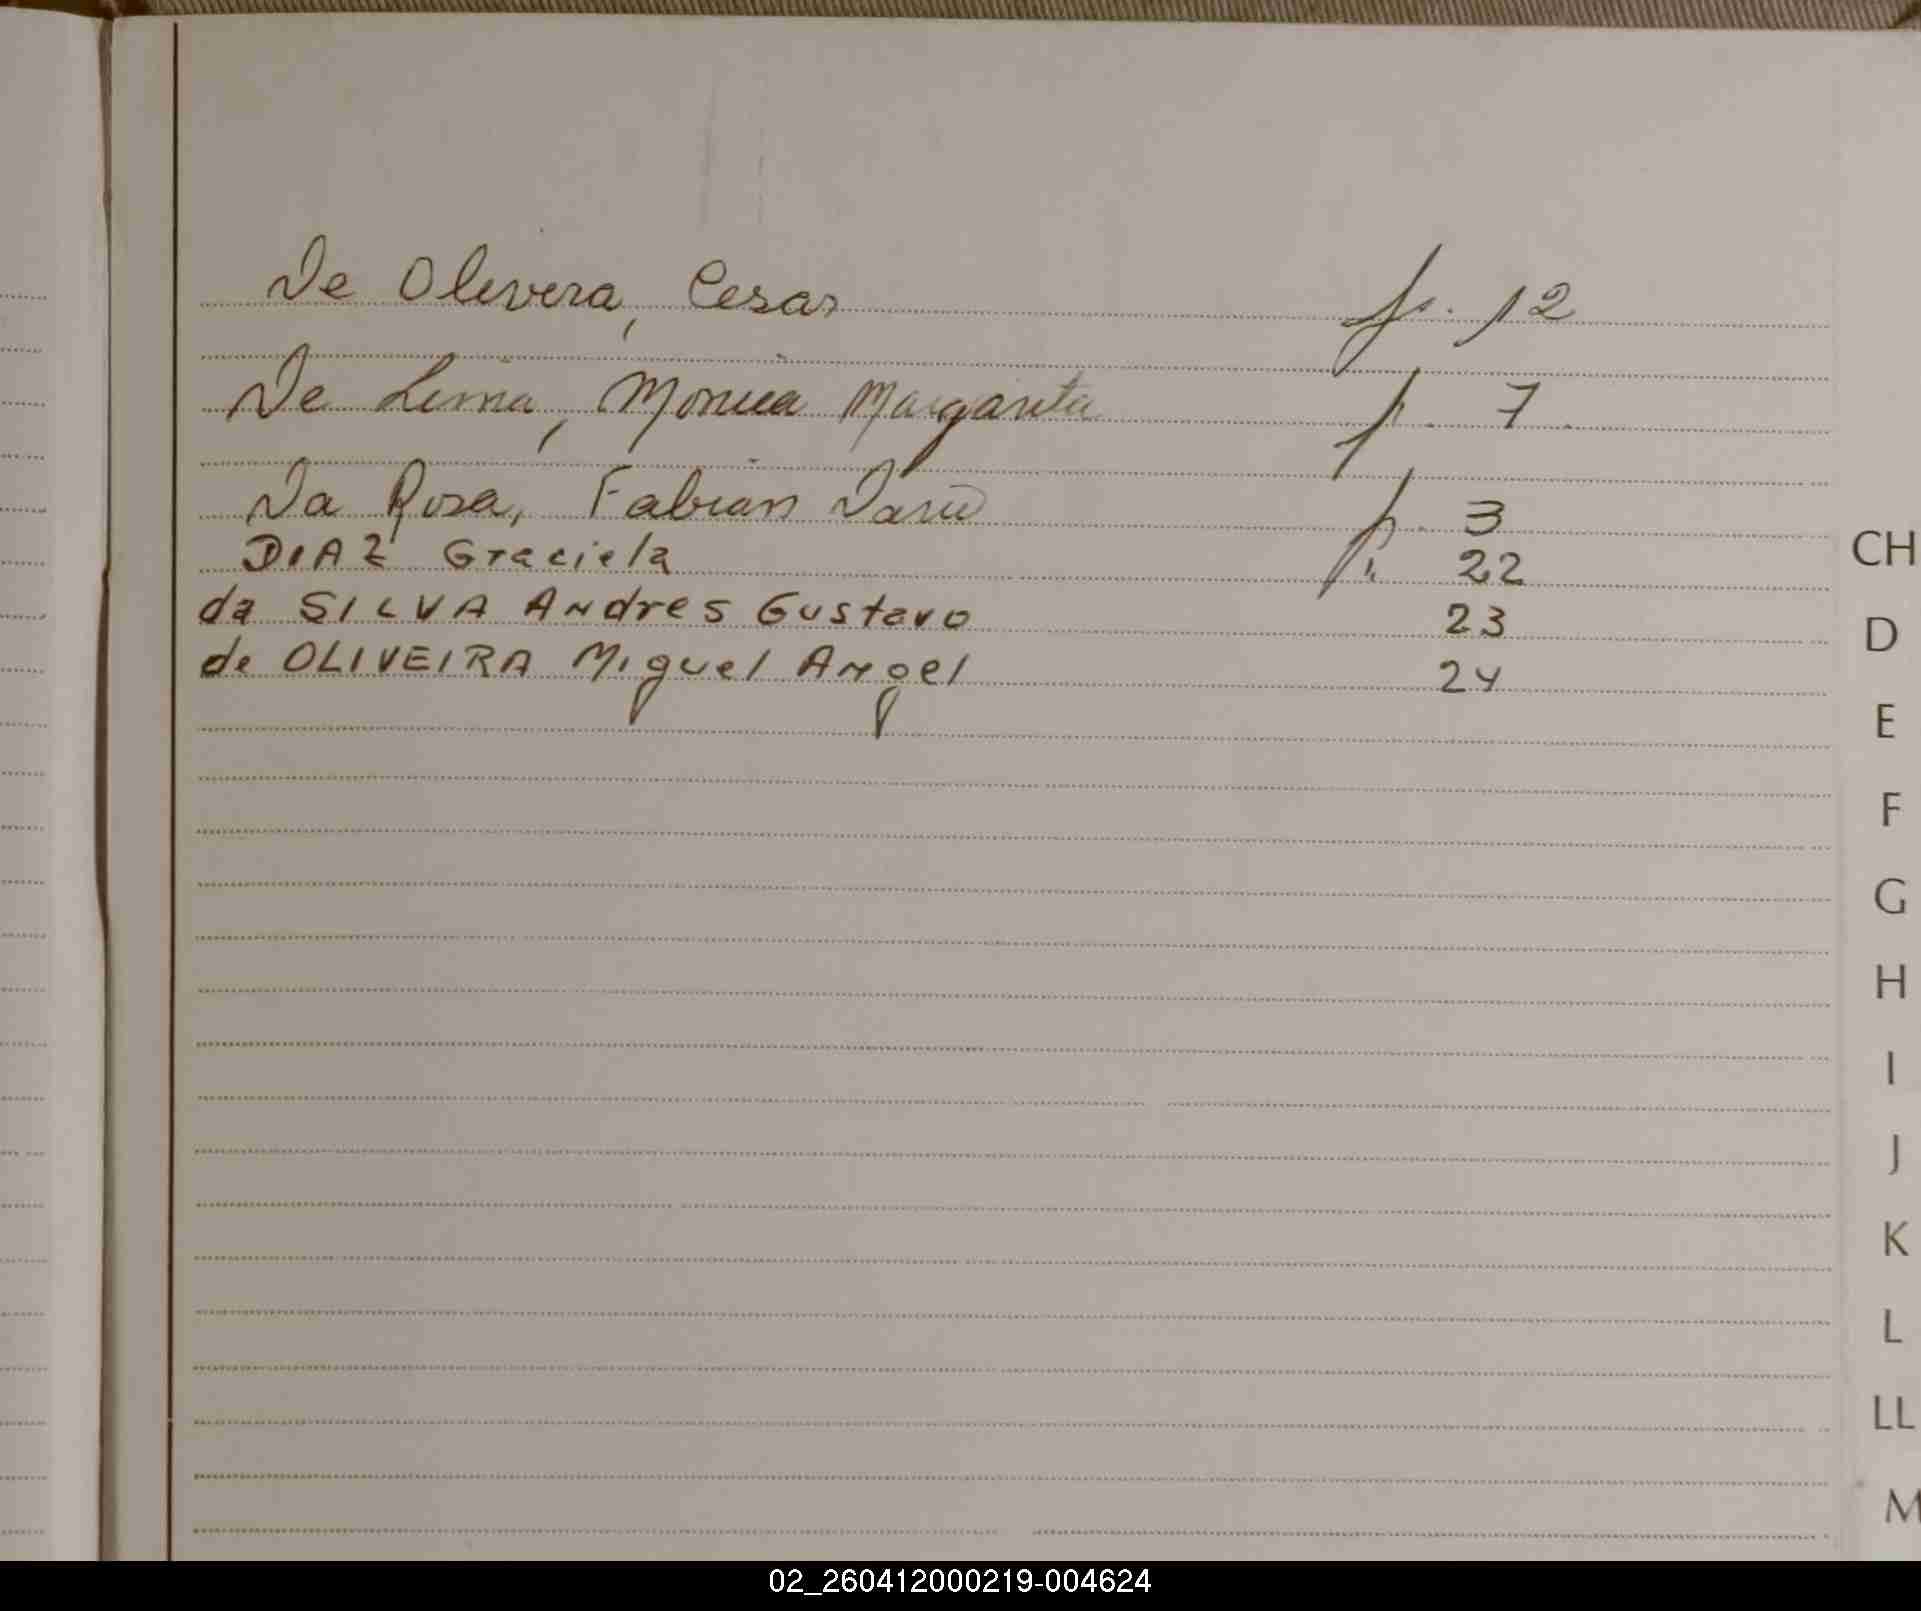 De Olivera, Cesar f. 12
De Lima, Monica Margarita f. 7
Da Rosa, Fabian Dario f. 3
DIAZ Graciela f. 22
da SILVA Andres Gustavo 23
de OLIVEIRA Miguel Angel 24
CH
D
E
F
G
H
I
J
K
L
LL
M
02_260412000219-004624